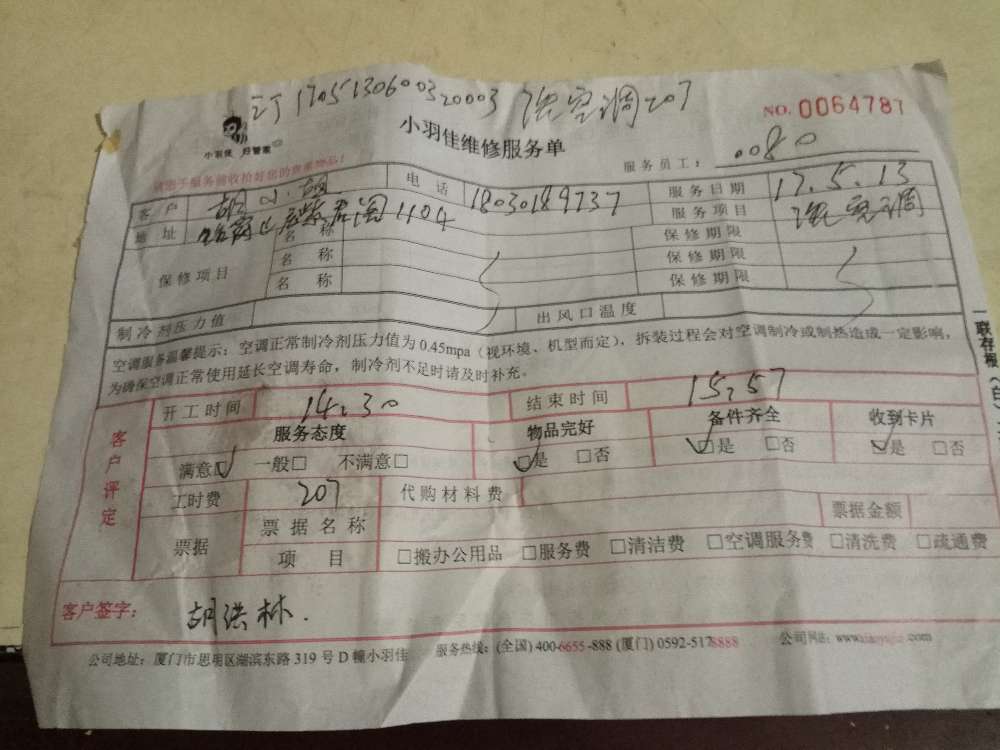 订 1705130600320003 洗空调207
小羽佳 好管家
NO. 0064787
小羽佳维修服务单
服务员工： 0080
客户 胡小姐 电话 18030189737 服务日期 17.5.13
地址 1104 服务项目 洗空调
保修项目 名称 保修期限
名称 保修期限
名称 保修期限
制冷剂压力值 出风口温度
空调服务温馨提示：空调正常制冷剂压力值为 0.45mpa（视环境、机型而定），拆装过程会对空调制冷或制热造成一定影响，
为确保空调正常使用延长空调寿命，制冷剂不足时请及时补充。
一联存根（白）
客户评定
开工时间 14:30 结束时间 15:57
服务态度 物品完好 备件齐全 收到卡片
满意☑ 一般□ 不满意□ ☑是 □否 ☑是 □否 ☑是 □否
工时费 207 代购材料费
票据 票据名称 票据金额
项目 □搬办公用品 □服务费 □清洁费 □空调服务费 □清洗费 □疏通费
客户签字： 胡洪林.
公司地址：厦门市思明区湖滨东路 319 号 D 幢小羽佳 服务热线：(全国) 400-6655-888 (厦门) 0592-5178888 公司网站：www.xiaoyujia.com